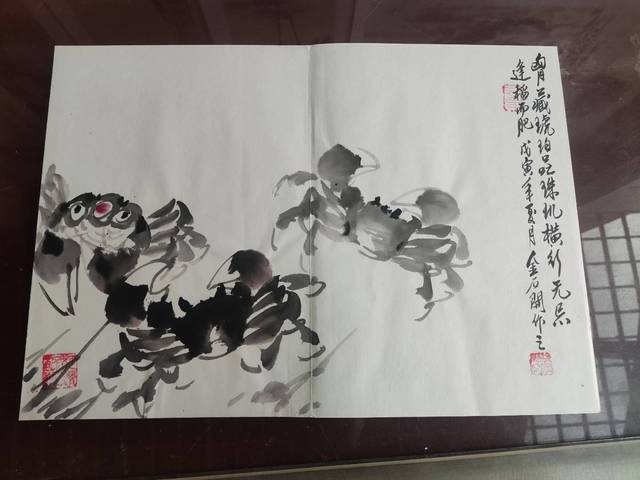 胸藏琥珀品珠玑横行无忌
逢稻而肥 戊寅年夏月 金石開作之